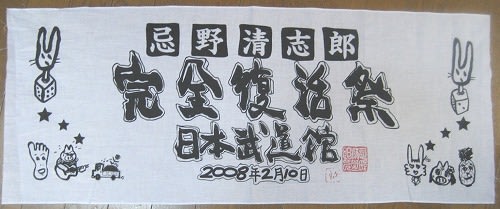 忌野清志郎
完全復活祭
日本武道館
2008年2月10日